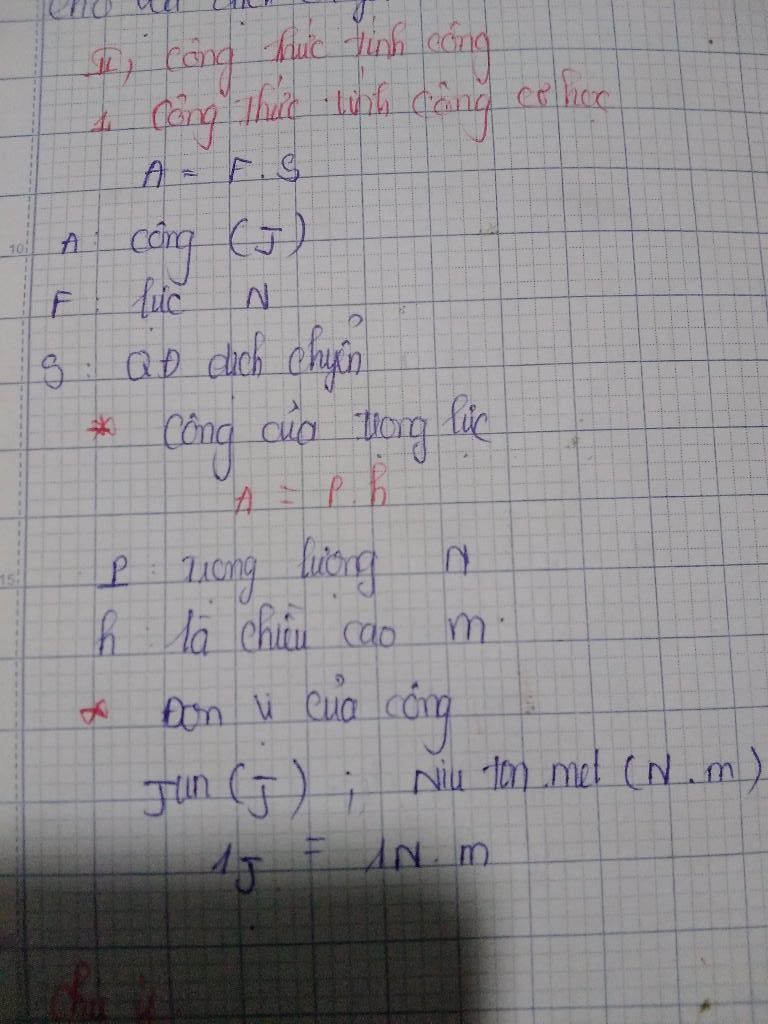 II, Công thức tính công
1, Công thức tính công cơ học
A = F.S
A: công (J)
F: lực N
S: QĐ dịch chyển
* Công của trọng lực
A = P.h
P: trọng lượng N
h: là chiều cao m.
* Đơn vị của công
Jun (J) ; Niu tơn.met (N.m)
1J = 1N.m
Chú ý